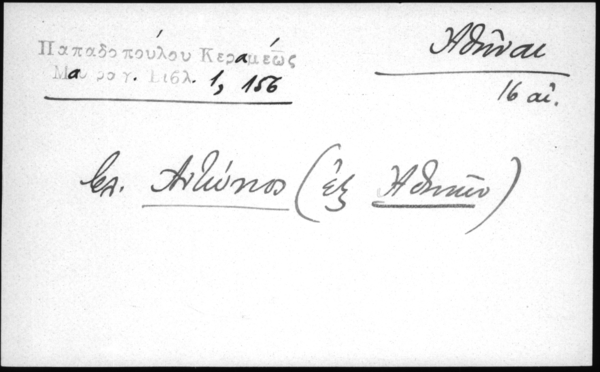 Παπαδοπούλου Κεραμέως
Μαυρογ. Βιβλ. 1, 156
Ἀθῆναι
16 αἰ.
Ἀντώνιος (ἐξ Ἀθηνῶν)